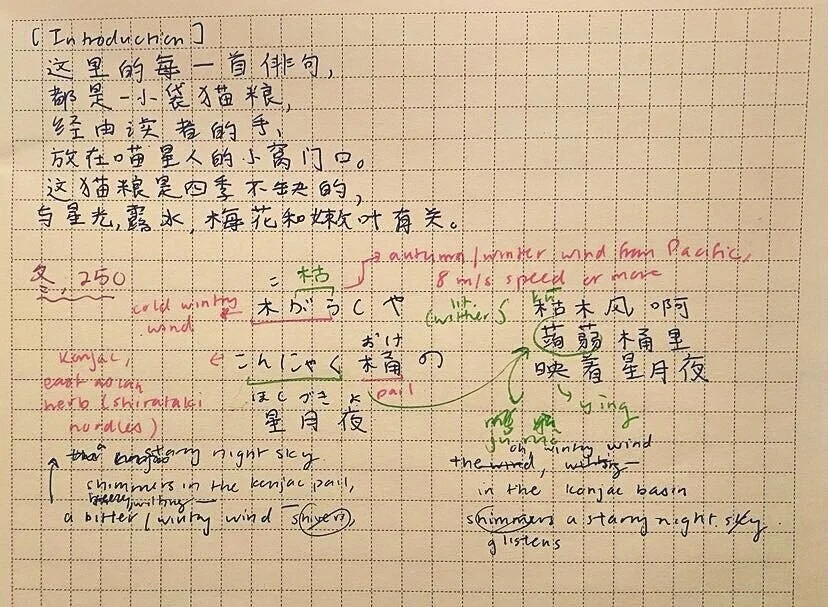 [Introduction]
这里的每一首俳句，
都是一小袋猫粮，
经由读者的手，
放在喵星人的小窝门口。
这猫粮是四季不缺的，
与星光，露水，梅花和嫩叶有关。
冬，250
autumn/winter wind from Pacific,
8 m/s speed or more
こ 枯
木がらしや
cold wintry
wind
lit.
(wither)
枯木风啊
蒟蒻桶里
映着星月夜
おけ
こんにゃく桶の
pail
konjac,
east asian
herb (shirataki
noodles)
ほし づき よ
星月夜
ying
a starry night sky
shimmers in the konjac pail,
a bitter/wintry wind shivers,
oh wintry wind
the wind,
in the konjac basin
shimmers a starry night sky
glistens